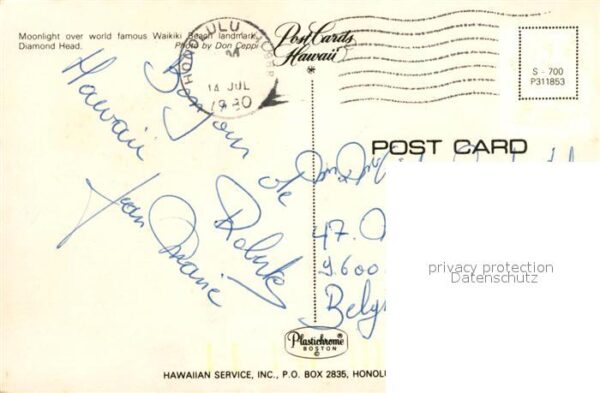 Moonlight over world famous Waikiki Beach landmark,
Diamond Head.
Photo by Don Ceppi
HONOLULU
14 JUL
1980
Post Cards
Hawaii
S - 700
P311853
POST CARD
Bonjour de
Hawaii
Jean Marie
47.
9600
Belg
privacy protection
Datenschutz
Plastichrome®
BOSTON
©
HAWAIIAN SERVICE, INC., P.O. BOX 2835, HONOLU